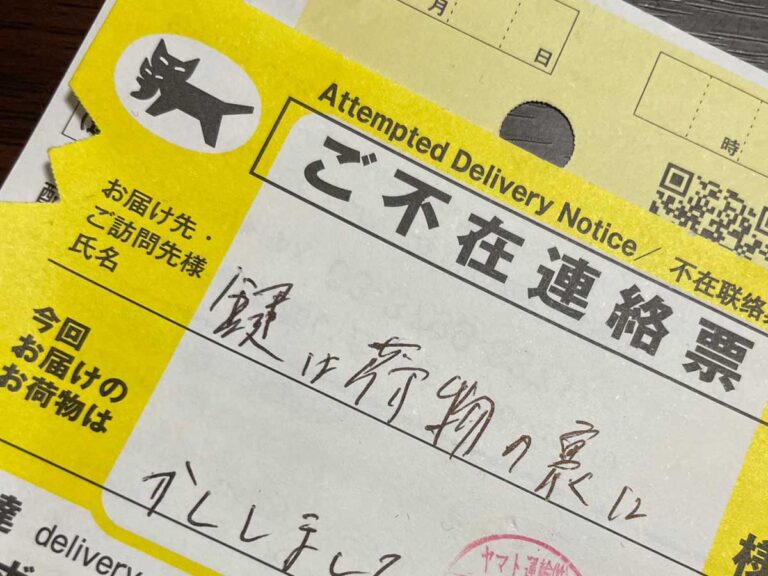 月
日
時
Attempted Delivery Notice/ 不在联络
ご不在連絡票
お届け先・
ご訪問先様
氏名
鍵は荷物の裏に
今回
お届けの
お荷物は
様
達 delivery
ヤマト運輸